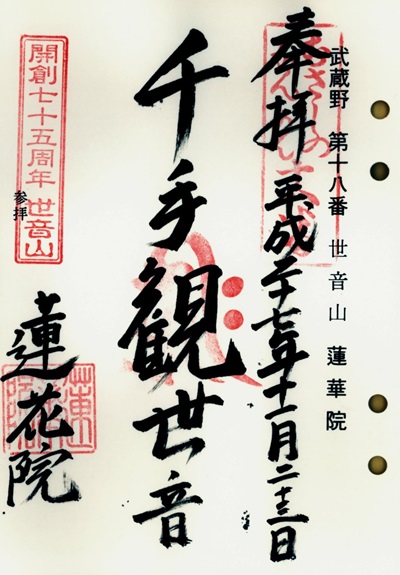 武蔵野 第十八番 世音山 蓮華院
奉拝 平成二十七年十一月二十三日
千手観世音
開創七十五周年 世音山
参拝
蓮花院